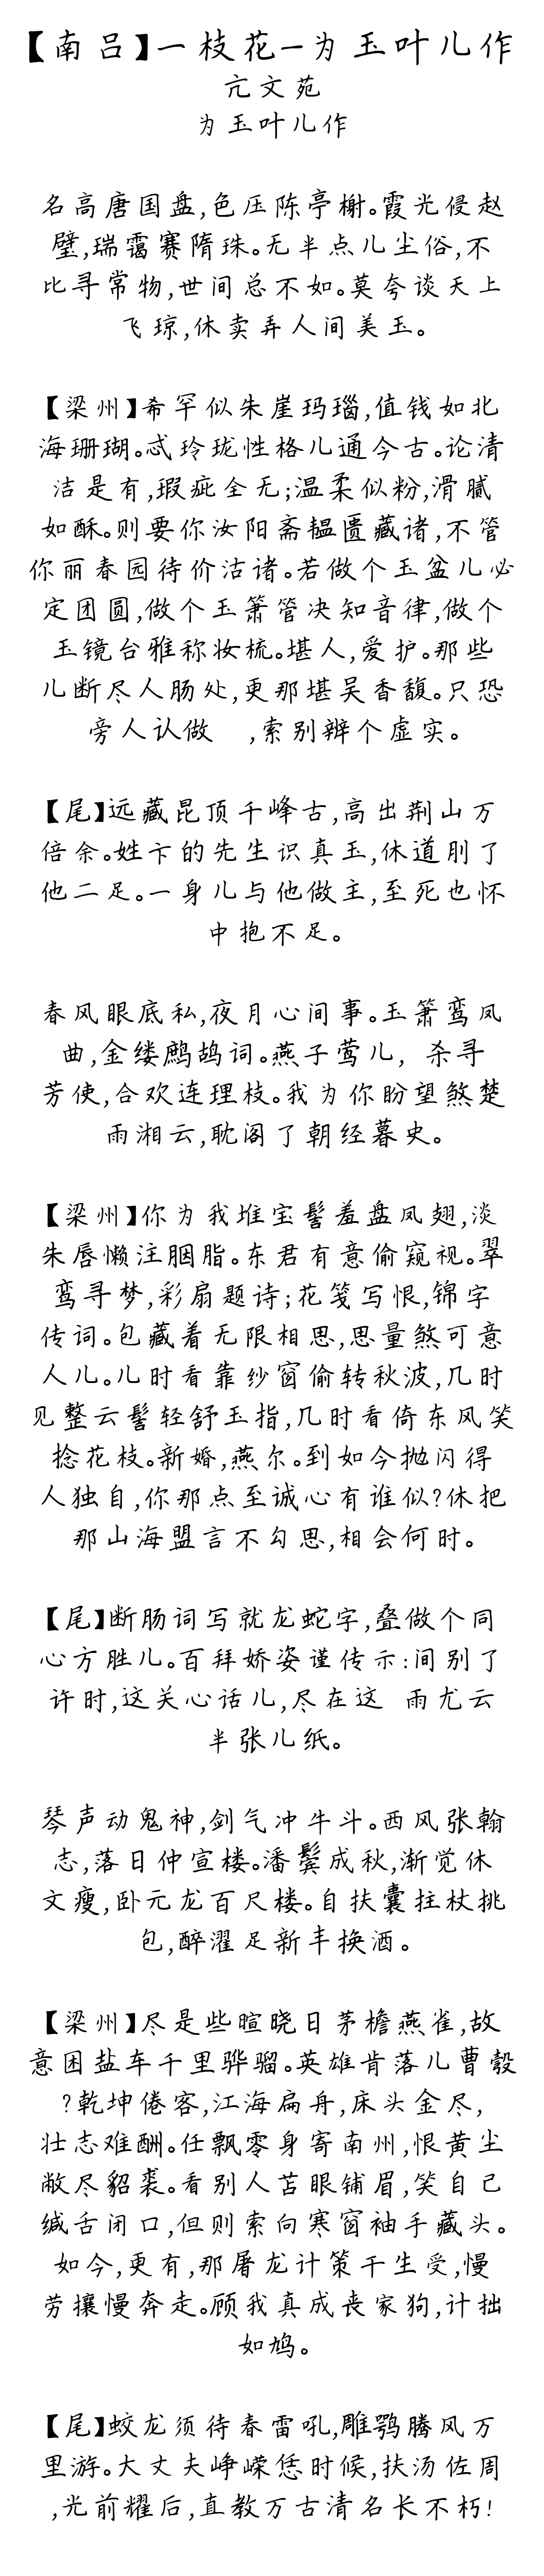 【南吕】一枝花-为玉叶儿作
亢文苑
为玉叶儿作
名高唐国盘,色压陈亭榭。霞光侵赵
璧,瑞霭赛隋珠。无半点儿尘俗,不
比寻常物,世间总不如。莫夸谈天上
飞琼,休卖弄人间美玉。
【梁州】希罕似朱崖玛瑙,值钱如北
海珊瑚。忒玲珑性格儿通今古。论清
洁是有,瑕疵全无;温柔似粉,滑腻
如酥。则要你汝阳斋韫匮藏诸,不管
你丽春园待价沽诸。若做个玉盆儿必
定团圆,做个玉箫管决知音律,做个
玉镜台雅称妆梳。堪人,爱护。那些
儿断尽人肠处,更那堪吴香馥。只恐
旁人认做 ,索别辨个虚实。
【尾】远藏昆顶千峰古,高出荆山万
倍余。姓卞的先生识真玉,休道刖了
他二足。一身儿与他做主,至死也怀
中抱不足。
春风眼底私,夜月心间事。玉箫鸾凤
曲,金缕鹧鸪词。燕子莺儿, 杀寻
芳使,合欢连理枝。我为你盼望煞楚
雨湘云,耽阁了朝经暮史。
【梁州】你为我堆宝髻羞盘凤翅,淡
朱唇懒注胭脂。东君有意偷窥视。翠
鸾寻梦,彩扇题诗;花笺写恨,锦字
传词。包藏着无限相思,思量煞可意
人儿。几时看靠纱窗偷转秋波,几时
见整云髻轻舒玉指,几时看倚东风笑
捻花枝。新婚,燕尔。到如今抛闪得
人独自,你那点至诚心有谁似?休把
那山海盟言不勾思,相会何时。
【尾】断肠词写就龙蛇字,叠做个同
心方胜儿。百拜娇姿谨传示:间别了
许时,这关心话儿,尽在这 雨尤云
半张儿纸。
琴声动鬼神,剑气冲牛斗。西风张翰
志,落日仲宣楼。潘鬓成秋,渐觉休
文瘦,卧元龙百尺楼。自扶囊拄杖挑
包,醉濯足新丰换酒。
【梁州】尽是些暄晓日茅檐燕雀,故
意困盐车千里骅骝。英雄肯落儿曹彀
?乾坤倦客,江海扁舟,床头金尽,
壮志难酬。任飘零身寄南州,恨黄尘
敝尽貂裘。看别人苫眼铺眉,笑自己
缄舌闭口,但则索向寒窗袖手藏头。
如今,更有,那屠龙计策干生受,慢
劳攘慢奔走。顾我真成丧家狗,计拙
如鸠。
【尾】蛟龙须待春雷吼,雕鹗腾风万
里游。大丈夫峥嵘恁时候,扶汤佐周
,光前耀后,直教万古清名长不朽!